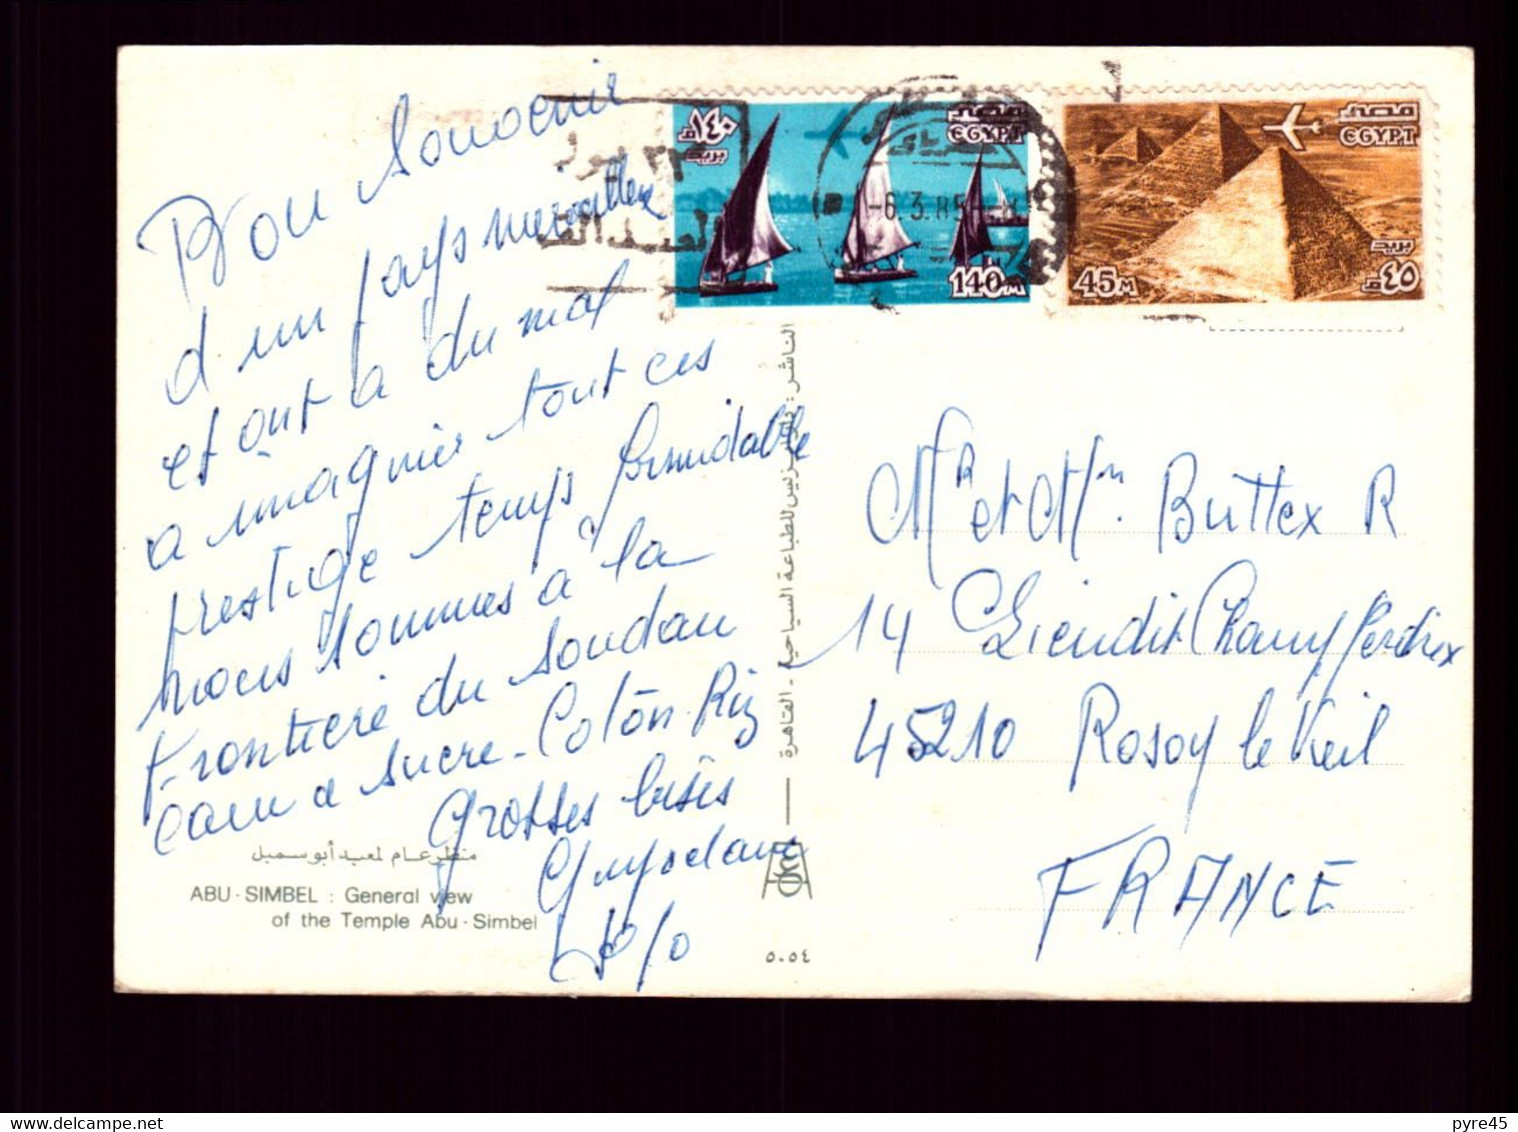 Bon Souvenir
d'un pays merveilleux
et ont a du mal
a imaginer tout ces
prestige temps formidable
nous sommes à la
Frontiere du Soudan
cane a sucre - Coton - Riz
Grosses bises
منظر عام لمعبد أبو سمبل
ABU - SIMBEL : General view
of the Temple Abu - Simbel
٥٠٥٤
الناشر :
للطباعة السياحية - القاهرة
١٤٠م
بريد
مصر
EGYPT
140M
-6.3.85
مصر
EGYPT
بريد
45M
٤٥م
Mr et Mm. Buttex R
14 Lieudit Champ Perdrix
45210 Rosoy le Vieil
FRANCE
pyre45